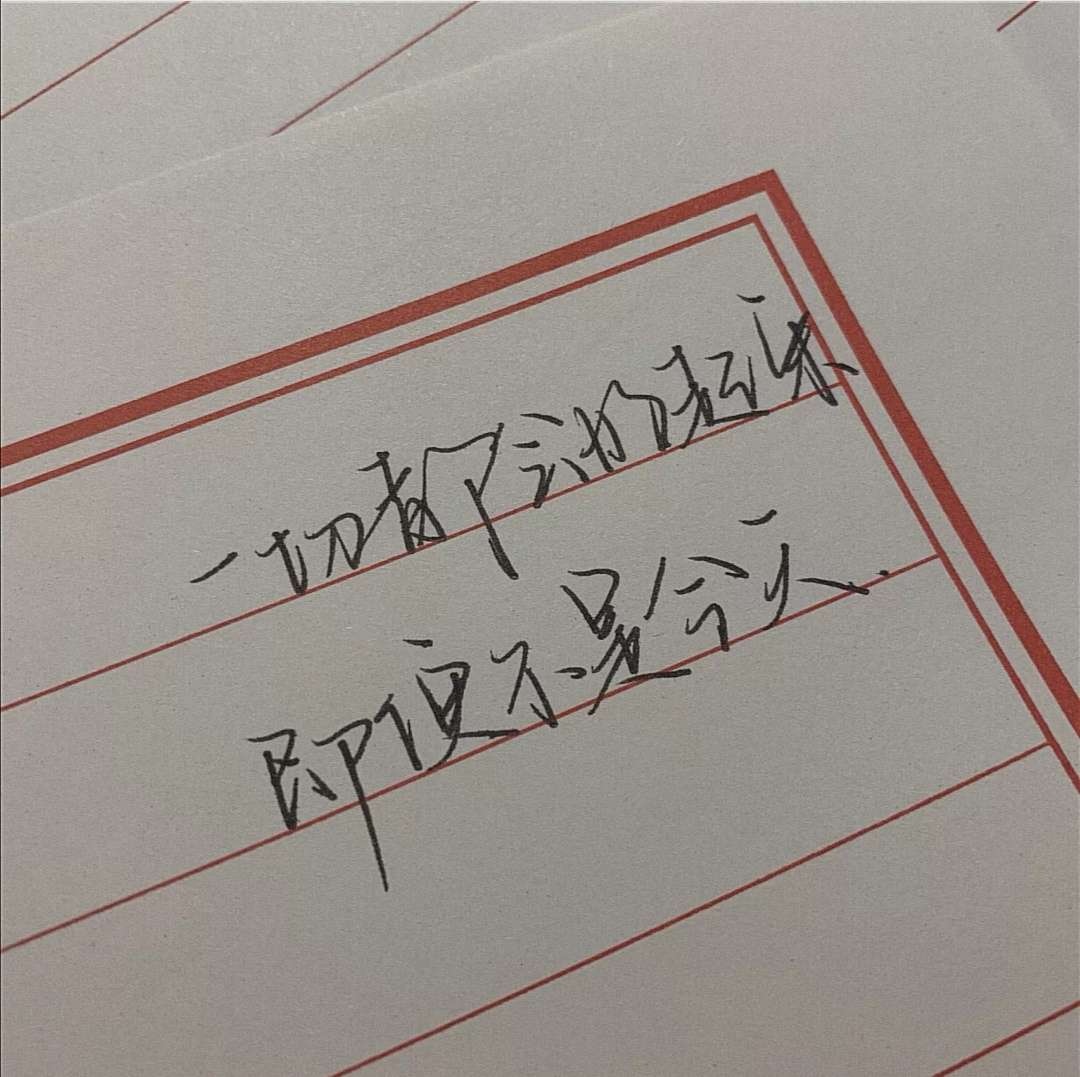 一切都会好起来
即便不是今天.